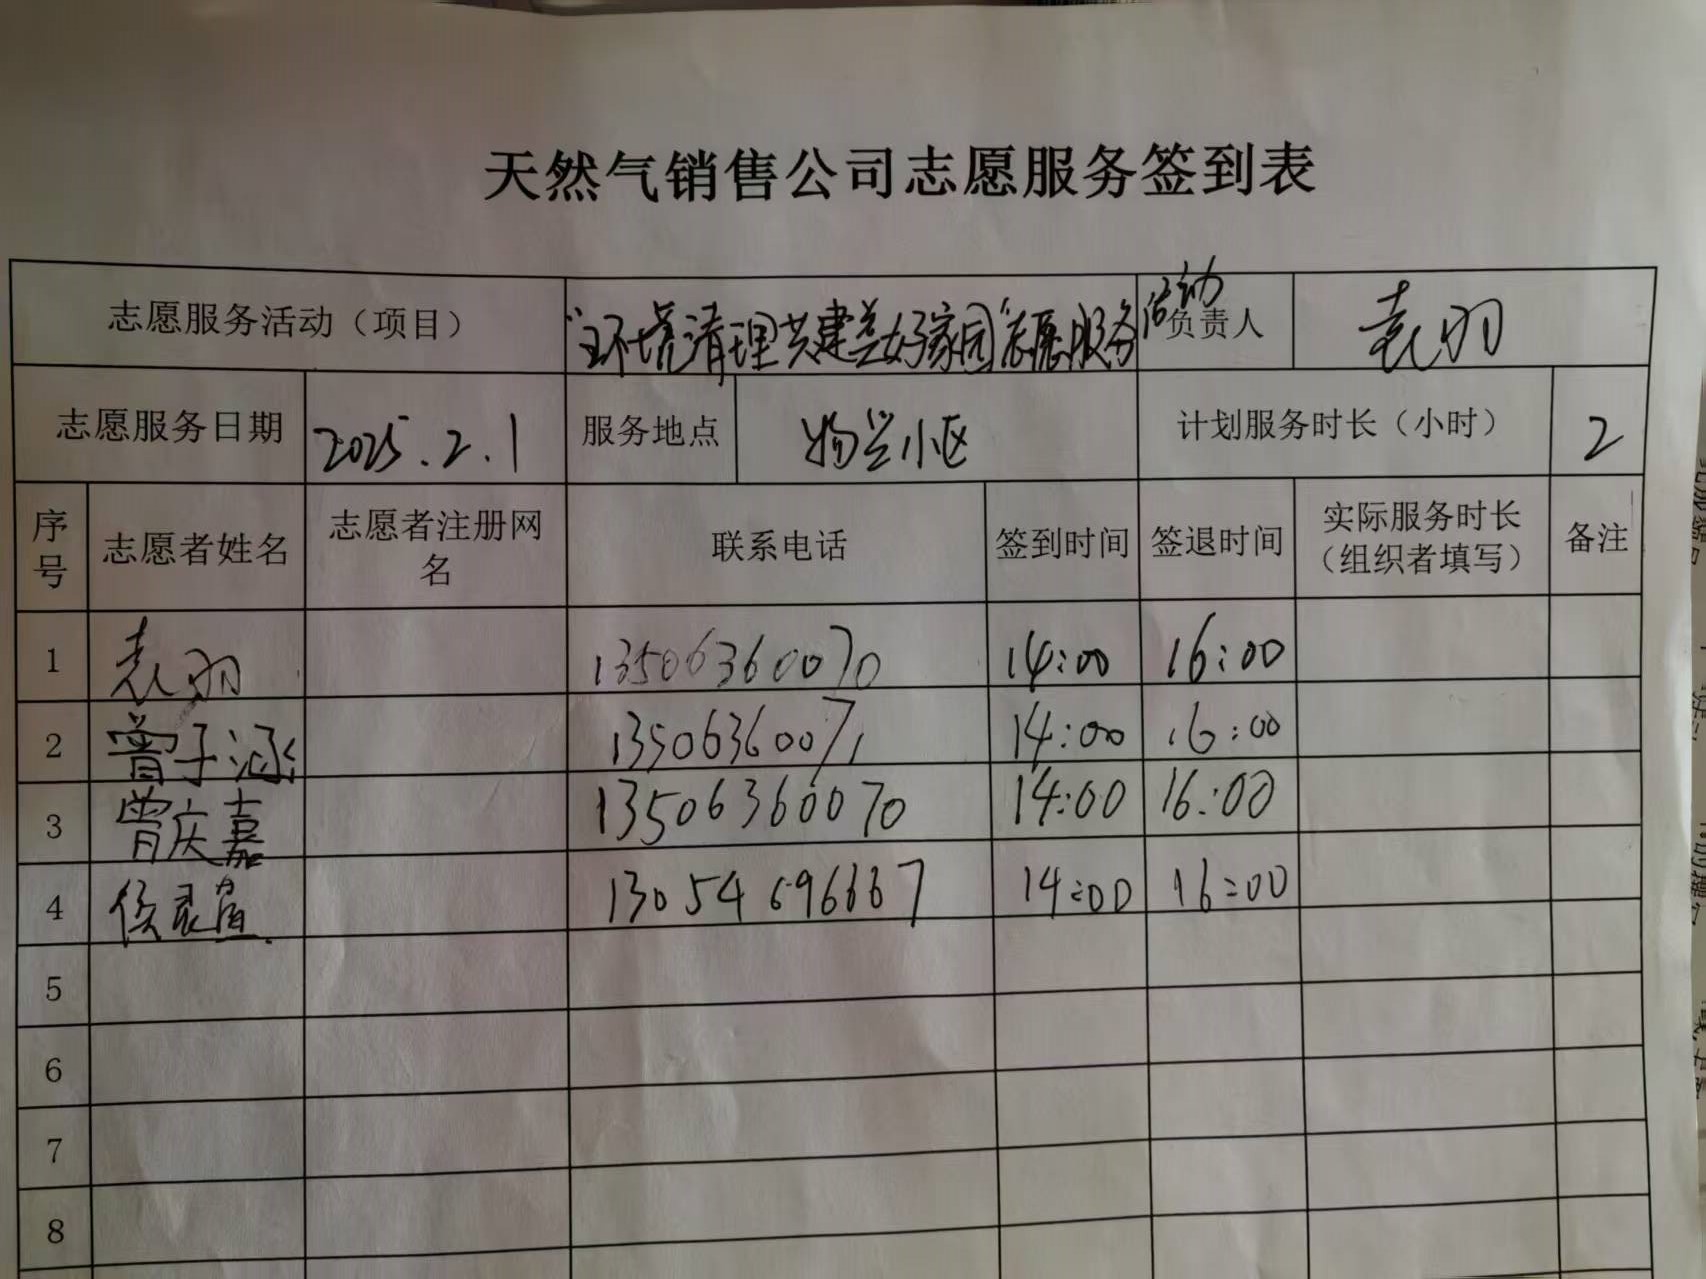 天然气销售公司志愿服务签到表
志愿服务活动（项目） “环境清理共建美好家园”志愿服务活动 负责人 袁羽
志愿服务日期 2025.2.1 服务地点 物兴小区 计划服务时长（小时） 2
序号 志愿者姓名 志愿者注册网名 联系电话 签到时间 签退时间 实际服务时长（组织者填写） 备注
1 袁羽 13506360070 14:00 16:00
2 曾子涵 13506360071 14:00 16:00
3 曾庆嘉 13506360070 14:00 16:00
4 13054696667 14:00 16:00
5
6
7
8